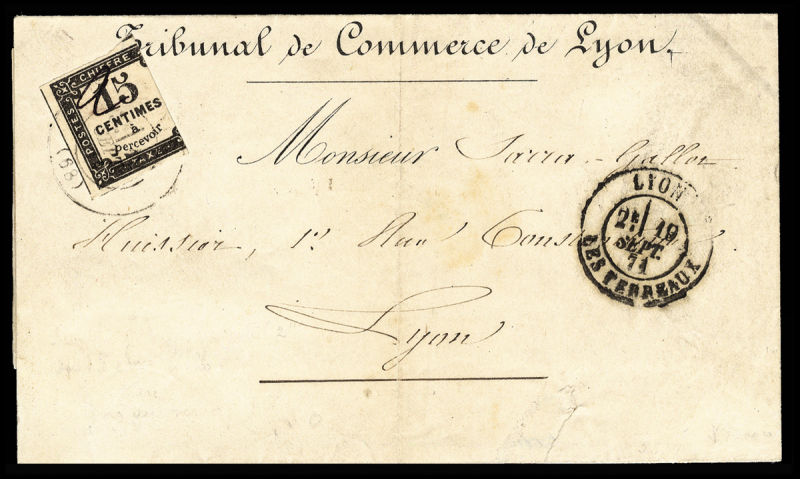 Tribunal de Commerce de Lyon.
CHIFFRE
15
CENTIMES
à
percevoir
POSTES
TAXE
(68)
Monsieur
Huissier, Rue
Lyon
LYON
2E 19
SEPT.
71
LES TERREAUX